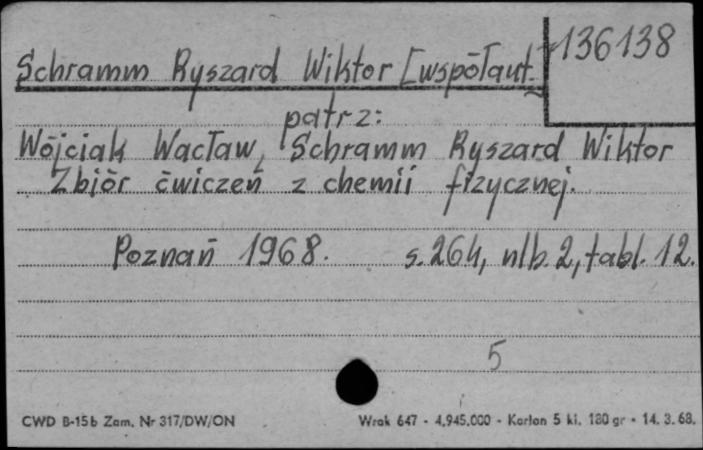 136138
Schramm Ryszard Wiktor [współaut.
patrz:
Wójciak Wacław, Schramm Ryszard Wiktor
Zbiór ćwiczeń z chemii fizycznej.
Poznań 1968. s. 264, nlb. 2, tabl. 12.
5
CWD B-15b Zam. Nr 317/DW/ON Wrak 647 - 4.945.000 - Karton 5 kl. 180 gr - 14. 3. 68.